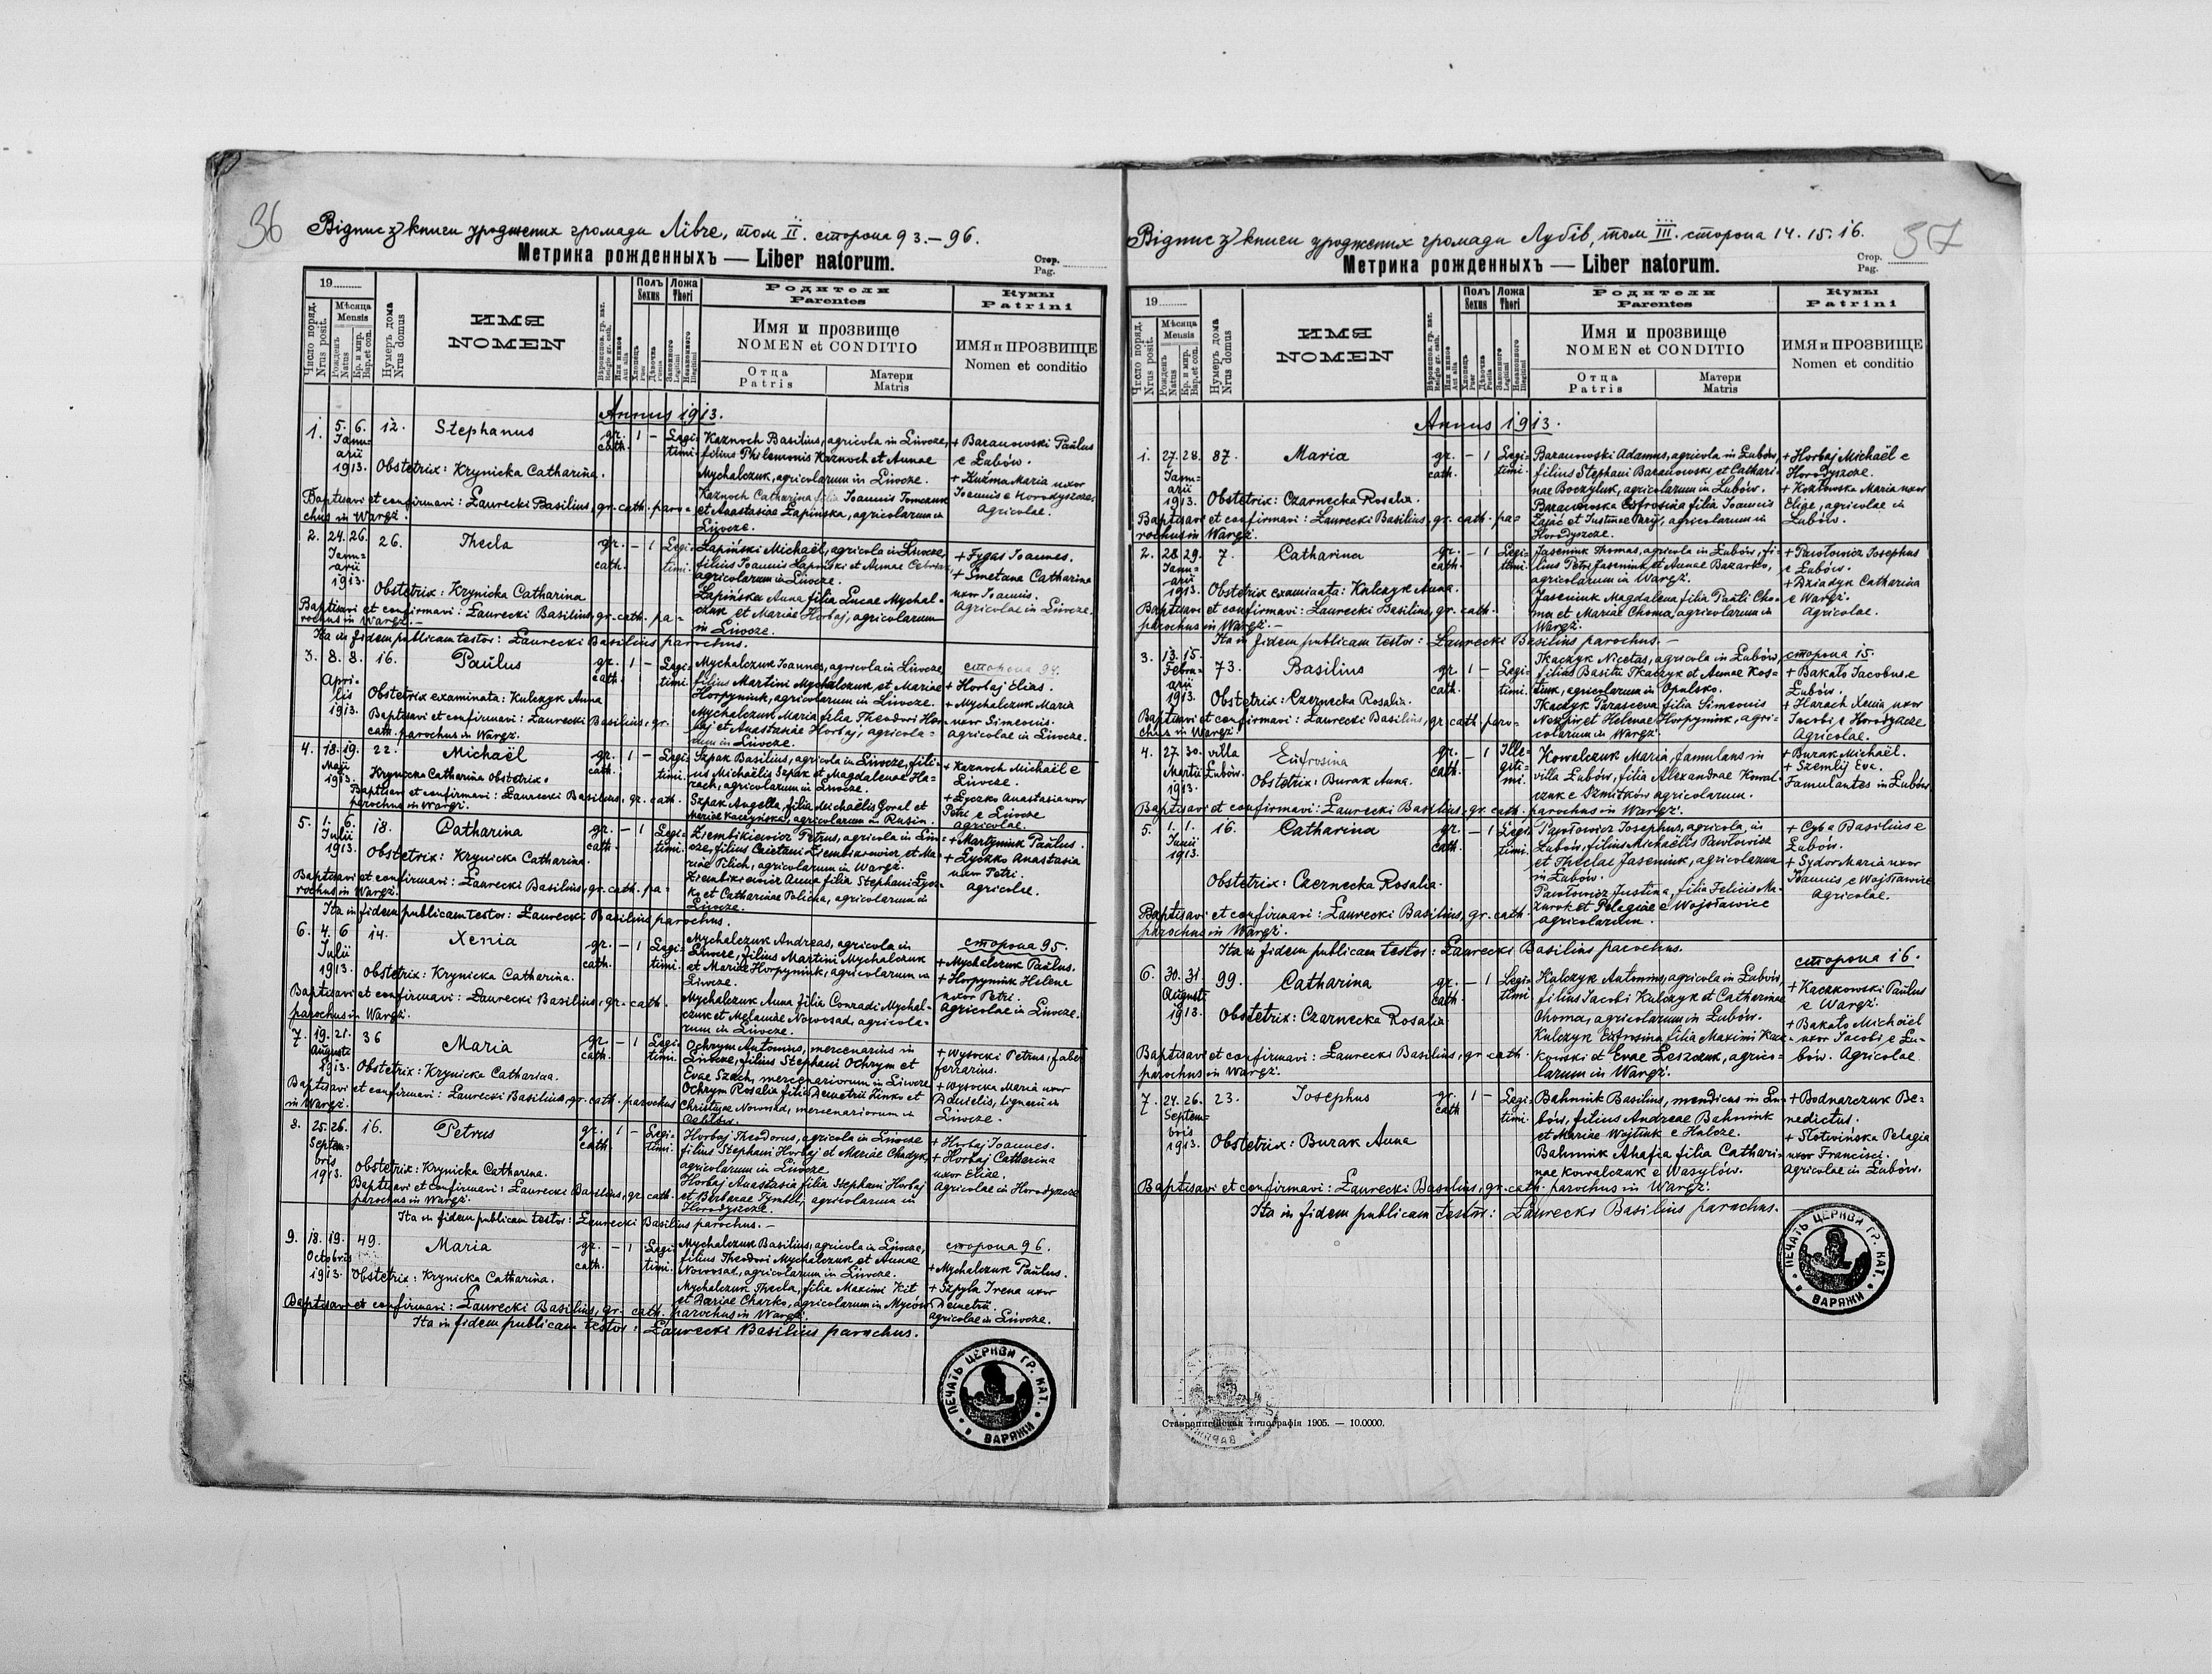 36
Відпис з книги уроджених громади Лівче, том II. сторона 93.–96.
Метрика рожденныхъ — Liber natorum.
Стор.
Pag.
19
Число поряд.
Nrus posit.
Мѣсяца
Mensis
Рожденъ
Natus
Кр. и мир.
Bap. et con.
Нумеръ дома
Nrus domus
ИМЯ
NOMEN
Полъ
Sexus
Ложа
Thori
Родители
Parentes
Имя и прозвище
NOMEN et CONDITIO
Отца
Patris
Матери
Matris
Кумы
Patrini
ИМЯ и ПРОЗВИЩЕ
Nomen et conditio
Annus 1913.
1. 5. 6. Januarii 1913. 12. Stephanus gr. cath. 1 – Legitimi
Kaznoch Basilius, agricola in Liwcze,
filius Philemonis Kaznoch et Annae
Mychalczuk, agricolarum in Liwcze.
Kaznoch Catharina filia Joannis Tomczuk
et Anastasiae Łapińska, agricolarum in
Liwcze.
+ Baranowski Paŭlus
e Łubów.
+ Kuźma Maria uxor
Joannis e Horodyszcze.
Agricolae.
Obstetrix: Krynicka Catharina.
Baptisavi et confirmavi: Ławrecki Basilius, gr. cath. paro=
chus in Waręż.
2. 24. 26. Januarii 1913. 26. Thecla gr. cath. – 1 Legitimi.
Łapiński Michaël, agricola in Liwcze,
filius Joannis Łapiński et Annae
agricolarum in Liwcze.
Łapińska Anna filia Lucae Mychal=
czuk et Mariae Horbaj, agricolarum
in Liwcze.
+ Fygas Joannes.
+ Smetana Catharina
uxor Joannis.
Agricolae in Liwcze.
Obstetrix: Krynicka Catharina
Baptisavi et confirmavi: Ławrecki Basilius, gr. cath. pa=
rochus in Waręż.–
Ita in fidem publicam testor: Ławrecki Basilius parochus.
3. 8. 8. Aprilis 1913. 16. Paŭlus gr. cath. 1 – Legitimi.
Mychalczuk Joannes, agricola in Liwcze
filius Martini Mychalczuk, et Mariae
Horpyniuk, agricolarum in Liwcze.
Mychalczuk Maria filia Theodori Hor=
baj et Anastasiae Horbaj, agricola=
rum in Liwcze.
сторона 94.
+ Horbaj Elias.
+ Mychalczuk Maria
uxor Simeonis.
agricolae in Liwcze.
Obstetrix examinata: Kulczyk Anna
Baptisavi et confirmavi: Ławrecki Basilius, gr.
cath. parochus in Waręż.
4. 18. 19. Maji 1913. 22. Michaël gr. cath. 1 – Legitimi.
Szpak Basilius, agricola in Liwcze, fili=
us Michaëlis Szpak et Magdalenae Ha=
rach, agricolarum in Liwcze.
Szpak Angella, filia Michaëlis Goral et
Mariae Kaczyńska, agricolarum in Rusin.
+ Kaznoch Michaël e
Liwcze.
+ Łyczko Anastasia uxor
Petri e Liwcze
agricolae.
Krynicka Catharina obstetrix.
Baptisavi et confirmavi: Ławrecki Basilius, gr. cath.
parochus in Waręż.
5. 1. 6. Julii 1913. 18. Catharina gr. cath. – 1 Legitimi.
Ziembikiewicz Petrus, agricola in Liw
cze, filius Caietani Ziembikiewicz, et Ma=
riae Pilich, agricolarum in Waręż.
Ziembikiewicz Anna filia Stephani Łycz=
ko et Catharinae Policha, agricolarum in
Liwcze.
+ Martyniuk Paŭlus.
+ Łyczko Anastasia
uxor Petri.
agricolae.
Obstetrix: Krynicka Catharina.
Baptisavi et confirmavi: Ławrecki Basilius, gr. cath. pa=
rochus in Waręż.
Ita in fidem publicam testor: Ławrecki Basilius parochus.
6. 4. 6 Julii 1913. 14. Xenia gr. cath. – 1 Legitimi.
Mychalczuk Andreas, agricola in
Liwcze, filius Martini Mychalczuk
et Mariae Horpyniuk, agricolarum in
Liwcze.
Mychalczuk Anna filia Conradi Mychal=
czuk et Melaniae Nowosad, agricola=
rum in Liwcze.
сторона 95.
+ Mychalczuk Paŭlus.
+ Horpyniuk Helena
uxor Petri.
Agricolae in Liwcze.
Obstetrix: Krynicka Catharina.
Baptisavi et confirmavi: Ławrecki Basilius, gr. cath.
parochus in Waręż.
7. 19. 21. Augusti 1913. 36 Maria gr. cath. – 1 Legitimi.
Ochrym Antonius, mercenarius in
Liwcze, filius Stephani Ochrym et
Evae Szach, mercenariorum in Liwcze
Ochrym Rosalia filia Demetrii Zinko et
Christinae Nowosad, mercenariorum in
+ Wysocki Petrus, faber
ferrarius.
+ Wysocka Maria uxor
Danielis, lignarii in
Liwcze.
Obstetrix: Krynicka Catharina.
Baptisavi et confirmavi: Ławrecki Basilius, gr. cath. parochus
in Waręż.
8. 25. 26. Septembris 1913. 16. Petrus gr. cath 1 – Legitimi.
Horbaj Theodorus, agricola in Liwcze
filius Stephani Horbaj et Mariae Chadyk,
agricolarum in Liwcze
Horbaj Anastasia filia Stephani Horbaj
et Barbarae Tymbal, agricolarum in
Horodyszcze.
+ Horbaj Joannes.
+ Horbaj Catharina
uxor Eliae.
Agricolae in Horodyszcze
Obstetrix: Krynicka Catharina.
Baptisavi et confirmavi: Ławrecki Basilius, gr. cath.
parochus in Waręż.
Ita in fidem publicam testor: Ławrecki Basilius parochus.–
9. 18. 19. Octobris 1913. 49. Maria gr. cath. – 1 Legitimi.
Mychalczuk Basilius, agricola in Liwcze,
filius Theodori Mychalczuk et Annae
Nowosad, agricolarum in Liwcze.
Mychalczuk Thecla, filia Maximi Kit
et Dariae Charko, agricolarum in Myców
сторона 96.
+ Mychalczuk Paŭlus.
+ Szpyla Irena uxor
Demetrii.
agricolae in Liwcze.
Obstetrix: Krynicka Catharina.
Baptisavi et confirmavi: Ławrecki Basilius, gr. cath. parochus in Waręż.
Ita in fidem publicam testor: Ławrecki Basilius parochus.
ПЕЧАТЬ ЦЕРКВИ ГР. КАТ. ВАРЯЖИ
37
Відпис з книги уроджених громади Лубів, том III. сторона 14. 15. 16.
Метрика рожденныхъ — Liber natorum.
Стор.
Pag.
19
Число поряд.
Nrus posit.
Мѣсяца
Mensis
Рожденъ
Natus
Кр. и мир.
Bap. et con.
Нумеръ дома
Nrus domus
ИМЯ
NOMEN
Полъ
Sexus
Ложа
Thori
Родители
Parentes
Имя и прозвище
NOMEN et CONDITIO
Отца
Patris
Матери
Matris
Кумы
Patrini
ИМЯ и ПРОЗВИЩЕ
Nomen et conditio
Annus 1913.
1. 27. 28. Januarii 1913. 87. Maria gr. cath. – 1 Legitimi.
Baranowski Adamus, agricola in Łubów,
filius Stephani Baranowski, et Cathari=
nae Boczyluk, agricolarum in Łubów.
Baranowska Eufrosina filia Joannis
Zając et Justinae Paryj, agricolarum in
Horodyszcze.
+ Horbaj Michaël e
Horodyszcze.
+ Kozłowska Maria uxor
Eliae, agricolae in
Łubów.
Obstetrix: Czarnecka Rosalia.
Baptisavi et confirmavi: Ławrecki Basilius, gr. cath. pa=
rochus in Waręż.
2. 28. 29. Januarii 1913. 7. Catharina gr. cath. – 1 Legitimi.
Jaseniuk Thomas, agricola in Łubów, fi=
lius Petri Jaseniuk et Annae Bazarko,
agricolarum in Waręż.
Jaseniuk Magdalena filia Paŭli Cho=
ma et Mariae Choma, agricolarum in
Waręż.
+ Pawłowicz Josephus
e Łubów.
+ Dziadyk Catharina
e Waręż.
Agricolae.
Obstetrix examinata: Kulczyk Anna.
Baptisavi et confirmavi: Ławrecki Basilius, gr. cath.
parochus in Waręż.–
Ita in fidem publicam testor: Ławrecki Basilius parochus.–
3. 13. 15. Februarii 1913. 73. Basilius gr. cath. 1 – Legitimi.
Tkaczyk Nicetas, agricola in Łubów,
filius Basilii Tkaczyk et Annae Kos=
tiuk, agricolarum in Opulsko.
Tkaczyk Parasceva filia Simeonis
et Helenae Horpyniuk, agri=
colarum in Waręż.
сторона 15.
+ Bakało Jacobus e
Łubów.
+ Harach Xenia uxor
Jacobi e Horodyszcze
Agricolae.
Obstetrix: Czernecka Rosalia.
Baptisavi et confirmavi: Ławrecki Basilius, gr. cath. paro=
chus in Waręż.
4. 27. 30. Martii 1913. villa Łubów. Eufrosina gr. cath. – 1 Illegitimi.
Kowalczuk Maria, famulans in
villa Łubów, filia Alexandrae Kowal=
czuk e Szmitków agricolarum.
+ Burak Michaël.
+ Szemlij Eva.
Famulantes in Łubów
Obstetrix: Burak Anna.
Baptisavi et confirmavi: Ławrecki Basilius, gr. cath. parochus in Waręż.
5. 1. 1. Junii 1913. 16. Catharina gr. cath. – 1 Legitimi.
Pawłowicz Josephus, agricola, in
Łubów, filius Michaëlis Pawłowicz
et Theclae Jaseniuk, agricolarum
in Łubów.
Pawłowicz Justina, filia Felicis Ma=
zurok et Pelagiae e Wojsławice
agricolarum.
+ Cyba Basilius e
Łubów.
+ Sydor Maria uxor
Joannis e Wojsławice
Agricolae.
Obstetrix: Czernecka Rosalia.
Baptisavi et confirmavi: Ławrecki Basilius, gr. cath.
parochus in Waręż.
Ita in fidem publicam testor: Ławrecki Basilius parochus.
6. 30. 31. Augusti 1913. 99. Catharina gr. cath. – 1 Legitimi.
Kulczyk Antonius, agricola in Łubów,
filius Jacobi Kulczyk et Catharinae
Choma, agricolarum in Łubów.
Kulczyk Eufrosina filia Maximi Kacz=
kowski et Evae Leszczuk, agrico=
larum in Waręż.
сторона 16.
+ Kaczkowski Paŭlus
e Waręż.
+ Bakało Michaël
uxor Jacobi e Łu=
bów. Agricolae.
Obstetrix: Czarnecka Rosalia
Baptisavi et confirmavi: Ławrecki Basilius, gr. cath.
parochus in Waręż.
7. 24. 26. Septembris 1913. 23. Josephus gr. cath 1 – Legitimi.
Bahniuk Basilius, mendicus in Łu=
bów, filius Andreae Bahniuk
et Mariae Wojtiuk e Hulcze.
Bahniuk Ahafia filia Cathari=
nae Kowalczuk e Wasylów.
+ Bodnarczuk Be=
nedictus.
+ Słotwińska Pelagia
uxor Francisci.
Agricolae in Łubów.
Obstetrix: Burak Anna
Baptisavi et confirmavi: Ławrecki Basilius, gr. cath. parochus in Waręż.
Ita in fidem publicam testor: Ławrecki Basilius parochus.
ПЕЧАТЬ ЦЕРКВИ ГР. КАТ. ВАРЯЖИ
Ставропигійская типографія 1905. — 10.0000.